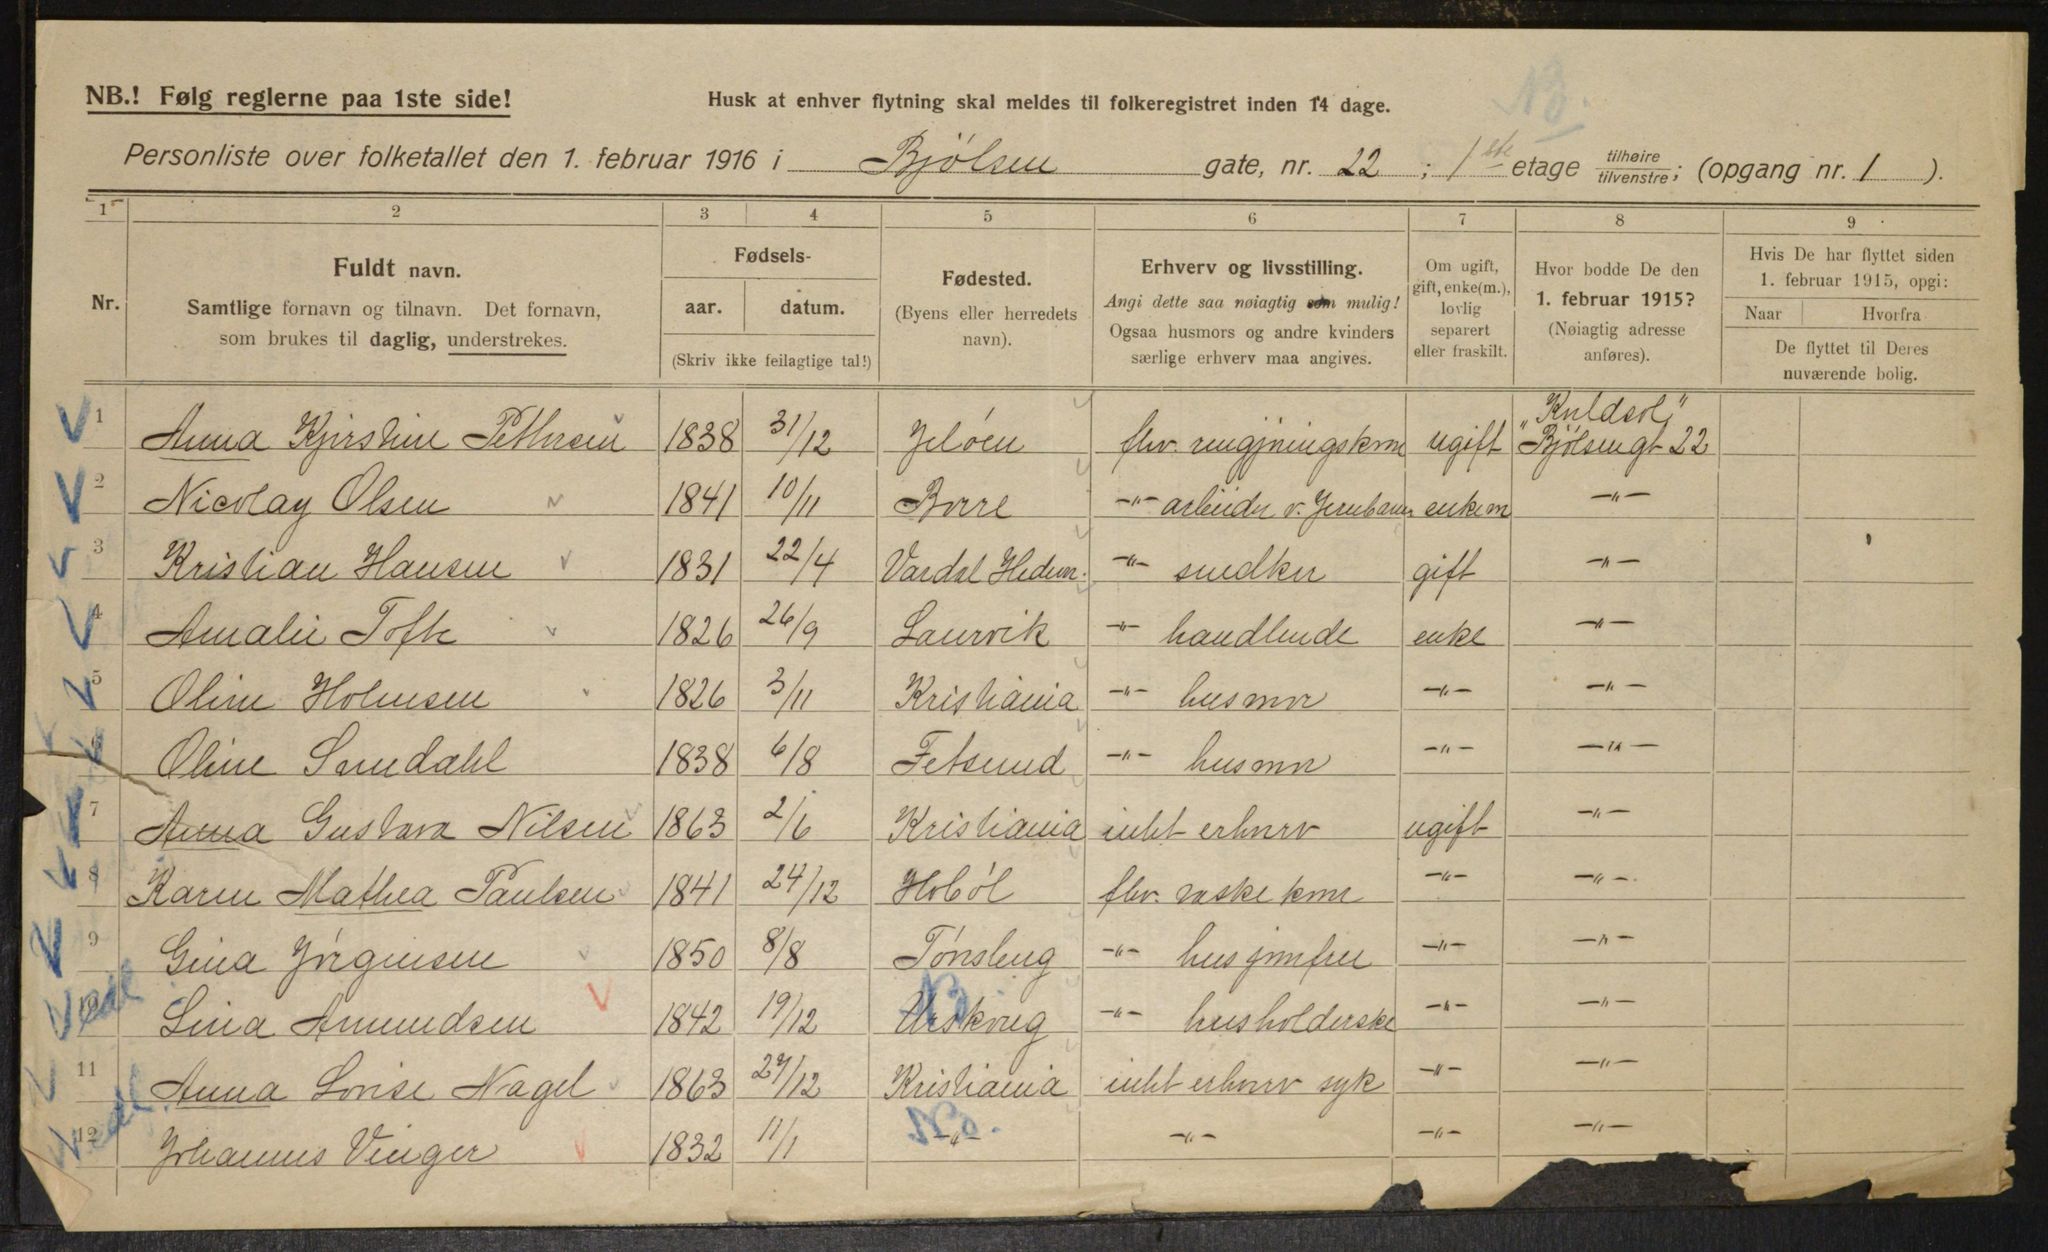 NB.
NB.! Følg reglerne paa 1ste side!
Husk at enhver flytning skal meldes til folkeregistret inden 14 dage.
Personliste over folketallet den 1. februar 1916 i Bjølsen gate, nr. 22 ; 1ste etage tilhøire / tilvenstre ; (opgang nr. 1 ).
1 2 3 4 5 6 7 8 9
Nr.
Fuldt navn.
Samtlige fornavn og tilnavn. Det fornavn,
som brukes til daglig, understrekes.
Fødsels-
aar. datum.
(Skriv ikke feilagtige tal!)
Fødested.
(Byens eller herredets
navn).
Erhverv og livsstilling.
Angi dette saa nøiagtig som mulig!
Ogsaa husmors og andre kvinders
særlige erhverv maa angives.
Om ugift,
gift, enke(m.),
lovlig
separert
eller fraskilt.
Hvor bodde De den
1. februar 1915?
(Nøiagtig adresse
anføres).
Hvis De har flyttet siden
1. februar 1915, opgi:
Naar Hvorfra
De flyttet til Deres
nuværende bolig.
"Kuldsol"
1 Anna Kjirstine Pettersen 1838 31/12 Jeløen fhv. rengjøringskone ugift Bjølsengt 22
2 Nicolay Olsen 1841 10/11 Borre -"- arbeider v. Jernbanen enkem -"-
3 Kristian Hansen 1831 22/4 Vardal Hedem. -"- snedker gift -"-
4 Amalie Tofte 1826 26/9 Laurvik -"- handlende enke -"-
5 Oline Holmsen 1826 3/11 Kristiania -"- husmor -"- -"-
6 Oline Sundahl 1838 6/8 Fetsund -"- husmor -"- -"-
7 Anna Gustava Nilsen 1863 2/6 Kristiania intet erhverv ugift -"-
8 Karen Mathea Paulsen 1841 24/12 Hobøl fhv. vaskekone -"- -"-
9 Gina Jørgensen 1850 8/8 Tønsberg -"- husjomfru -"- -"-
10 Lina Amundsen 1842 19/12 Urskoug -"- husholderske -"- -"-
11 Anna Lovise Nagel 1863 27/12 Kristiania intet erhverv syk -"- -"-
12 Johannes Vinger 1832 11/1 -"- -"- -"- -"-